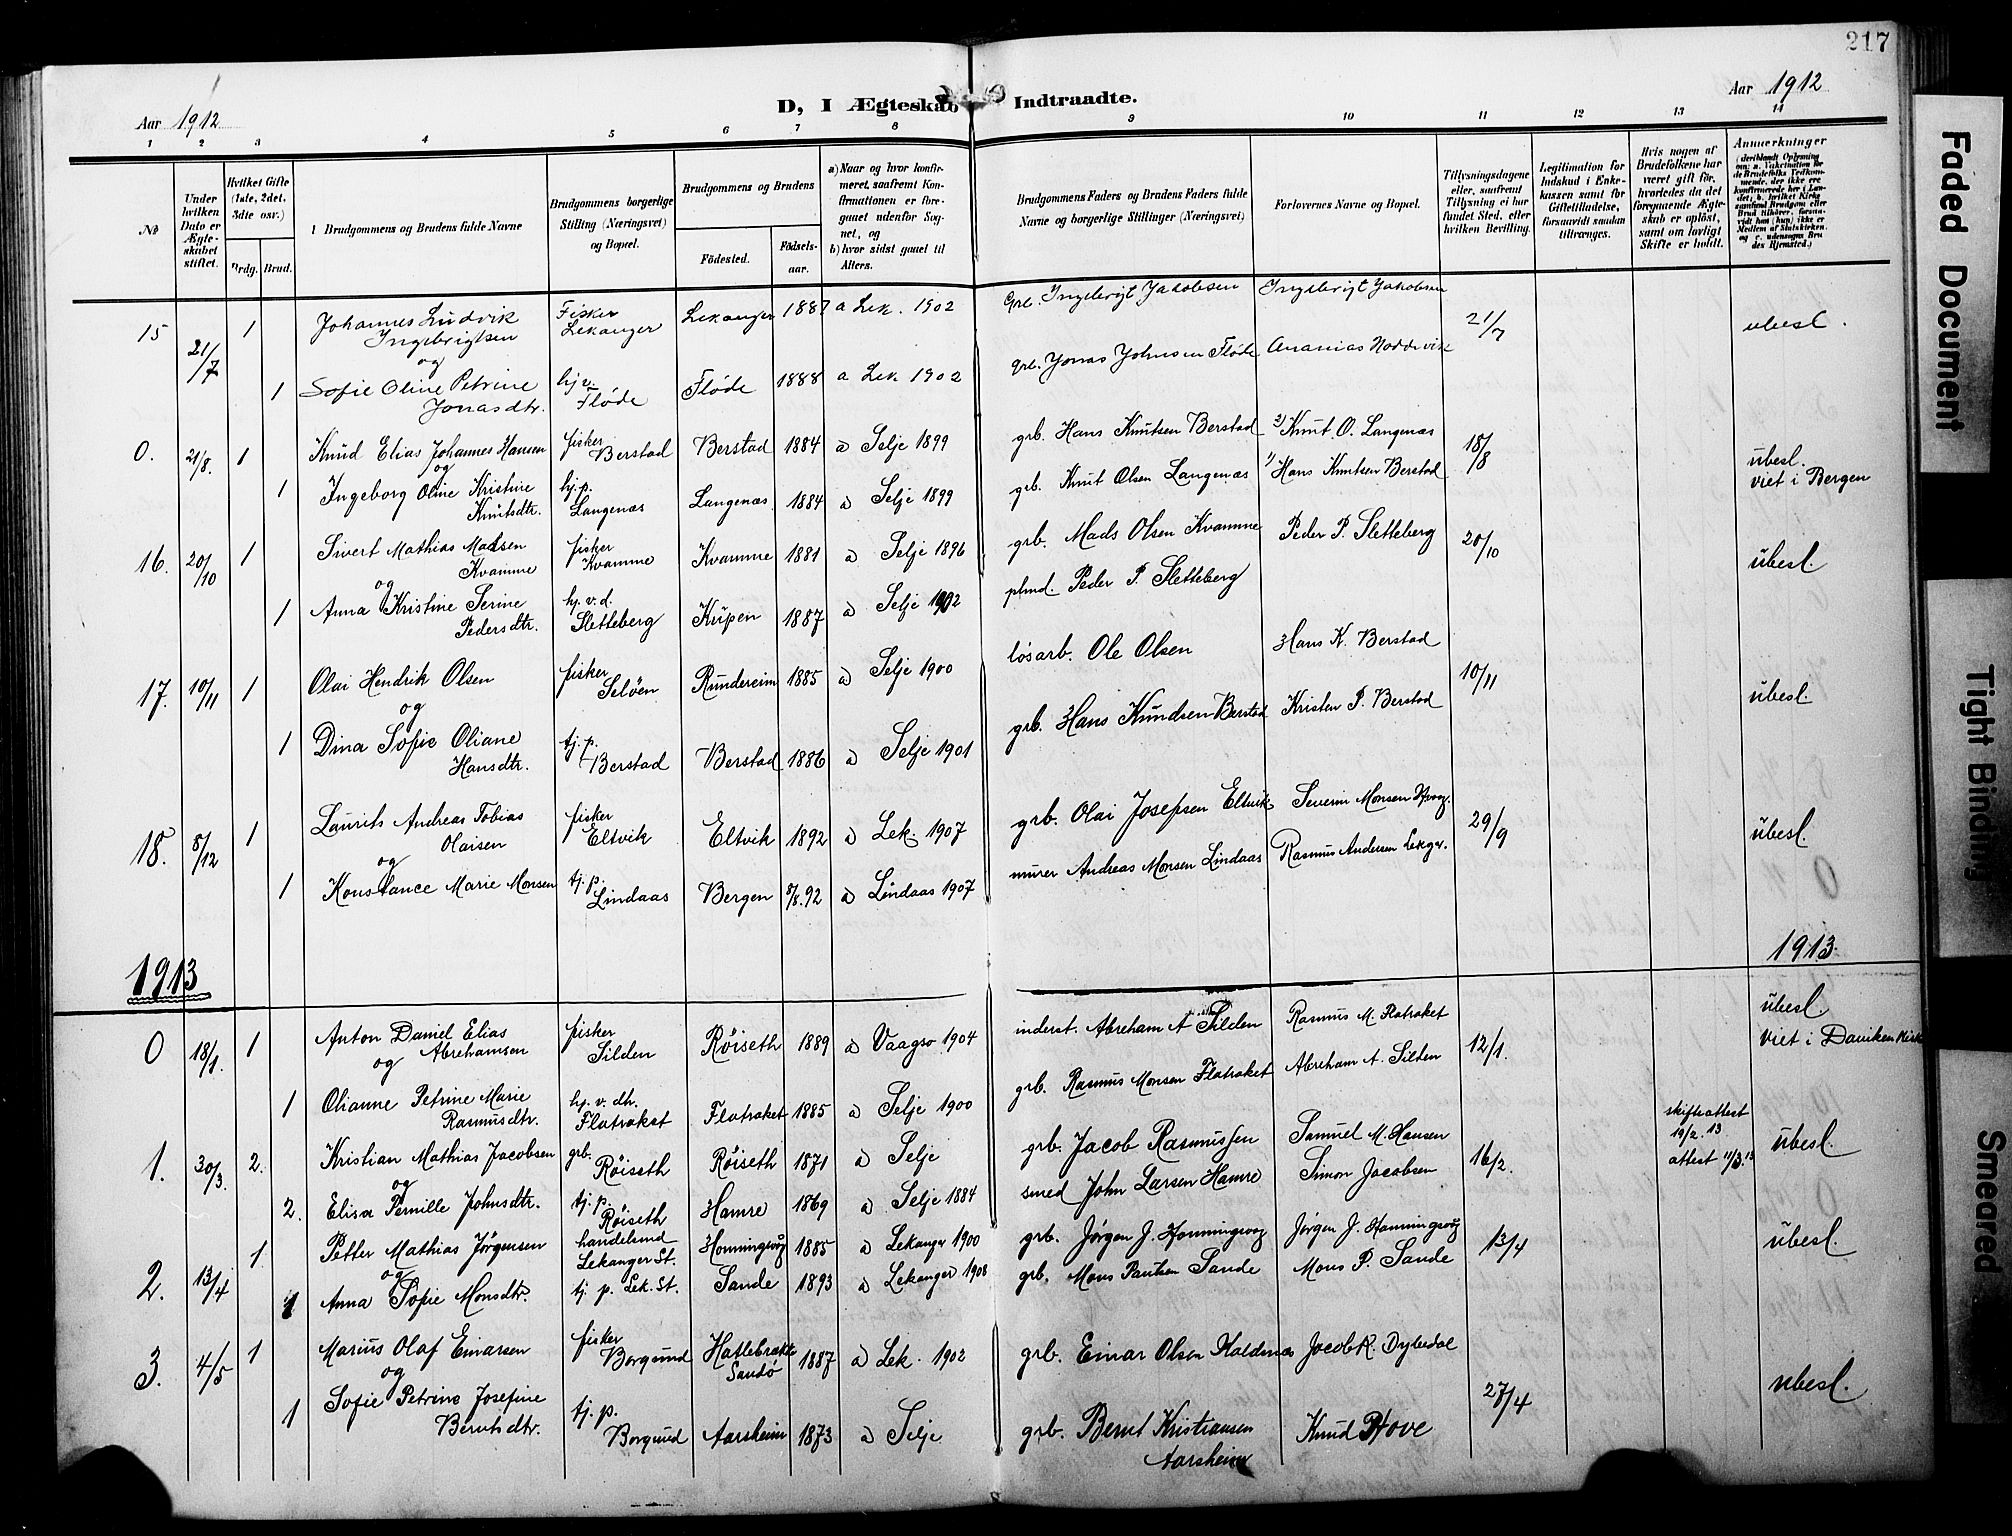 217
Aar 1912
D, I Ægteskab Indtraadte.
Aar 1912
1 2 3 4 5 6 7 8 9 10 11 12 13 14
No
Under hvilken Dato er Ægteskabet stiftet.
Hvilket Gifte (1ste, 2det, 3dte osv.)
Brdg. Brud.
Brudgommens og Brudens fulde Navne
Brudgommens borgerlige Stilling (Næringsvei) og Bopæl.
Brudgommens og Brudens
Fødested.
Fødselsaar.
a) Naar og hvor konfirmeret, saafremt Konfirmationen er foregaaet udenfor Sognet, og
b) hvor sidst gaaet til Alters.
Brudgommens Faders og Brudens Faders fulde Navne og borgerlige Stillinger (Næringsvei)
Forlovernes Navne og Bopæl.
Tillysningsdagene eller, saafremt Tillysning ei har fundet Sted, efter hvilken Bevilling.
Legitimation for Indskud i Enkekassen samt for Giftetilladelse, forsaavidt saadan tiltrænges.
Hvis nogen af Brudefolkene har været gift før, hvorledes da det foregaaende Ægteskab er opløst, samt om lovligt Skifte er holdt.
Anmerkninger
15 21/7 1 Johannes Ludvik Ingebrigtsen Fisker Lekanger Lekanger 1887 a Lek. 1902 Grb. Ingebrigt Jakobsen Ingebrigt Jakobsen 21/7 ubesl.
og
1 Sofie Oline Petrine Jonasdtr. hj v. Fløde Fløde 1888 a Lek 1902 grb. Jonas Johnsen Fløde Ananias Noddevik
0. 21/8. 1 Knud Elias Johannes Hansen fisker Berstad Berstad 1884 a Selje 1899 grb. Hans Knutsen Berstad 2) Knut O. Langenæs 18/8 ubesl. viet i Bergen
og
1 Ingeborg Oline Kristine Knutsdtr. hj. p. Langenæs Langenæs 1884 a Selje 1899 grb. Knut Olsen Langenæs 1) Hans Knutsen Berstad
16. 20/10 1 Sivert Mathias Madsen Kvamme fisker Kvamme Kvamme 1881 a Selje 1896 grb. Mads Olsen Kvamme Peder P. Sletteberg 20/10 ubesl.
og
1 Anna Kristine Serine Pedersdtr. hj. v. d. Sletteberg Krüpen 1887 a Selje 1902 plmd. Peder P. Sletteberg
17. 10/11 1 Olai Hendrik Olsen fisker Seløen Rundereim 1885 a Selje 1900 løsarb. Ole Olsen Hans K. Berstad 10/11 ubesl.
og
1 Dina Sofie Oliane Hansdtr. tj. p. Berstad Berstad 1886 a Selje 1901 grb. Hans Knudsen Berstad Kristen P. Berstad
18. 8/12 1 Laurits Andreas Tobias Olaisen fisker Eltvik Eltvik 1892 a Lek. 1907 grb. Olai Josefsen Eltvik Severin Monsen 29/9 ubesl.
og
1 Konstance Marie Monsen tj. p. Lindaas Bergen 8/8. 92 a Lindaas 1907 murer Andreas Monsen Lindaas Rasmus Andersen Lekgr.
1913 1913
0 18/1. 1 Anton Daniel Elias Abrehamsen fisker Silden Røiseth 1889 a Vaagsø 1904 inderst. Abreham A Silden Rasmus M. Flatraket 12/1. ubesl. viet i Daviken Kirke
og
1 Olianne Petrine Marie Rasmusdtr. hj. v. dr. Flatraket Flatraket 1885 a Selje 1900 grb. Rasmus Monsen Flatraket Abreham A. Silden
1. 30/3. 2. Kristian Mathias Jacobsen grb. Røiseth Røiseth 1871 a Selje grb. Jacob Rasmussen Samuel M. Hansen 16/2. skifteattest 19/2. 13 attest 11/3. 13 ubesl.
og
2. Elisa Pernille Johnsdtr. tj. p. Røiseth Hamre 1869 a Selje 1884 smed John Larsen Hamre Simon Jacobsen
2. 13/4 1 Petter Mathias Jørgensen handelsmd Lekanger St. Honningsvåg 1885 a Lekanger 1900 grb. Jørgen J. Honningsvåg Jørgen J. Honningsvåg 13/4 ubesl.
og
1 Anna Sofie Monsdtr. tj. p. Lek. St. Sande 1893 a Lekanger 1908 grb. Mons Paulsen Sande Mons P. Sande
3. 4/5 1 Marius Olaf Einarsen fisker Borgund Hatlebrække Sandø 1887 a Lek. 1902 grb. Einar Olsen Haldenæs Jacob R. Dybedal 27/4 ubesl.
og
1 Sofie Petrine Josefine Berntsdtr. tj. p. Borgund Aarsheim 1873 a Selje grb. Bernt Kristiansen Aarsheim Knud Hove
Faded Document
Tight Binding
Smeared